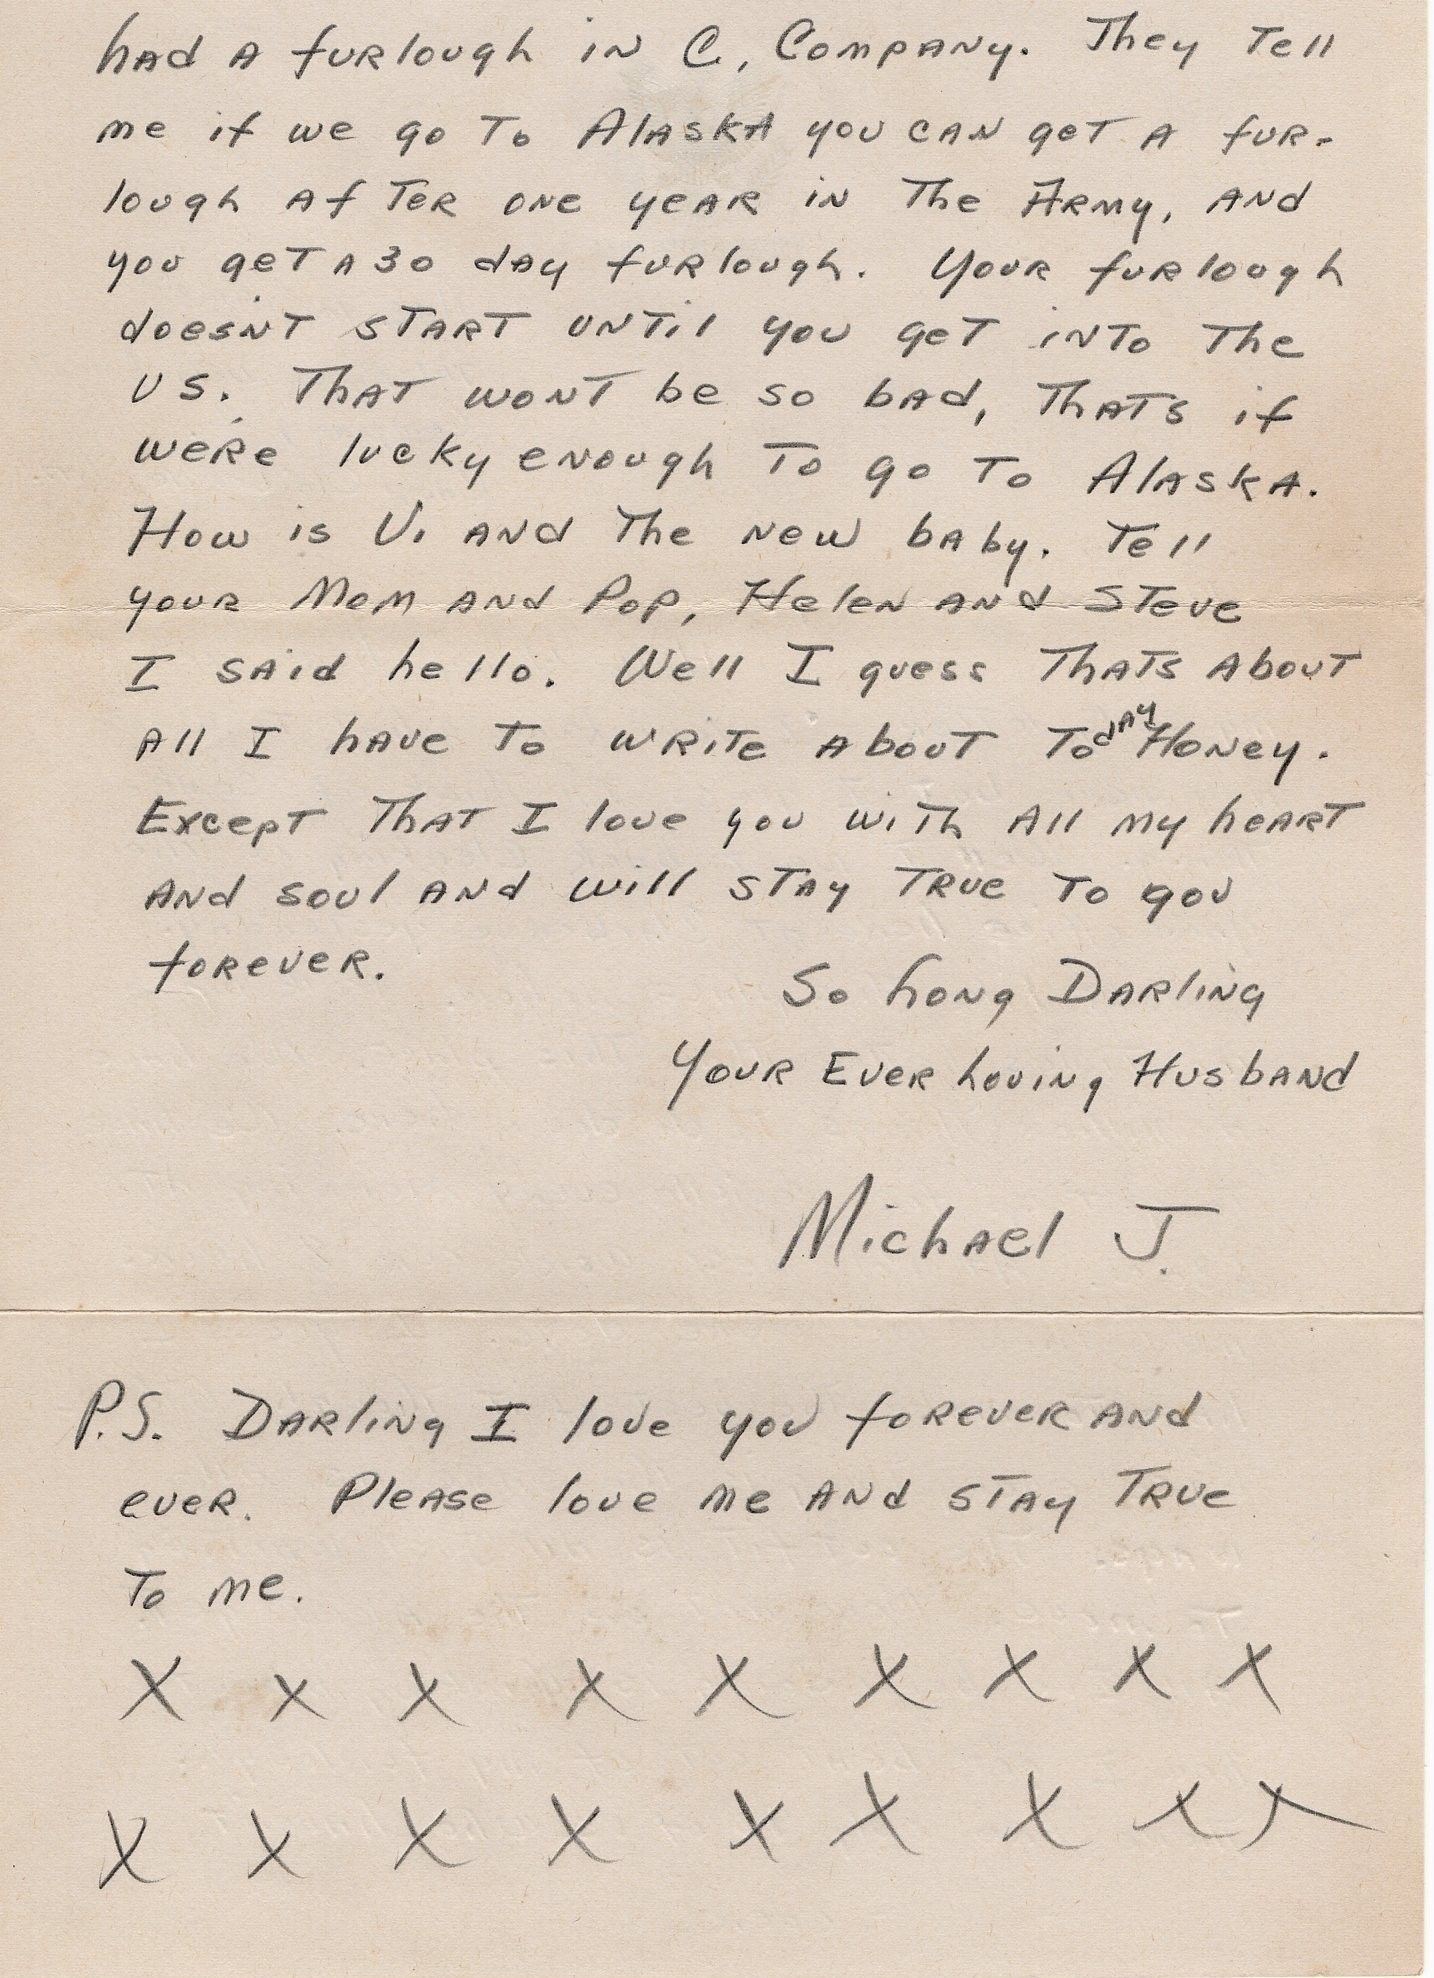 had a furlough in C, Company. They tell
me if we go to Alaska you can get a fur-
lough after one year in the Army, and
you get a 30 day furlough. Your furlough
doesn't start until you get into the
US. That wont be so bad, thats if
we're lucky enough to go to Alaska.
How is Vi and the new baby. Tell
your Mom and Pop, Helen and Steve
I said hello. Well I guess thats about
all I have to write about today Honey.
Except that I love you with all my heart
and soul and will stay true to you
forever.
So Long Darling
Your Ever Loving Husband
Michael J.
P.S. Darling I love you forever and
ever. Please love me and stay true
to me.
X X X X X X X X X
X X X X X X X X X